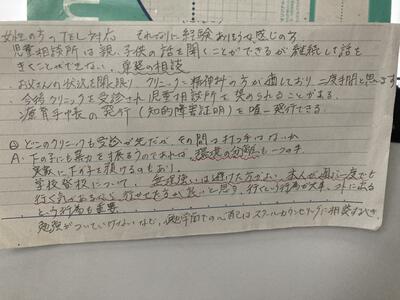 女性の方のTEL対応 それなりに経験ありそうな感じの方
児童相談所は親、子供の話を聞くことができるが継続して話を
きくことができない。 単発の相談
お父さんの状況を聞く限り クリニックと精神科の方が適しており、二度手間と思います
今後クリニックを受診され児童相談所を奨められることがある。
療育手帳の発行（知的障害証明）を唯一発行できる。
Q どこのクリニックも受診が先だが、その間は打つ手はないか
A. 下の子にも暴力を振るうのであれば、環境の分離も一つの手
実家に下の子を預けるのもあり。
学校登校について、無理強いは避けた方がよい 本人が週に一度でも
行く気があるなら、行かせた方が良いと思う、行くという行為が大事、外に出る
という行為も重要
勉強がついていけないなど、勉学面での心配はスクールカウンセリングに相談すべき